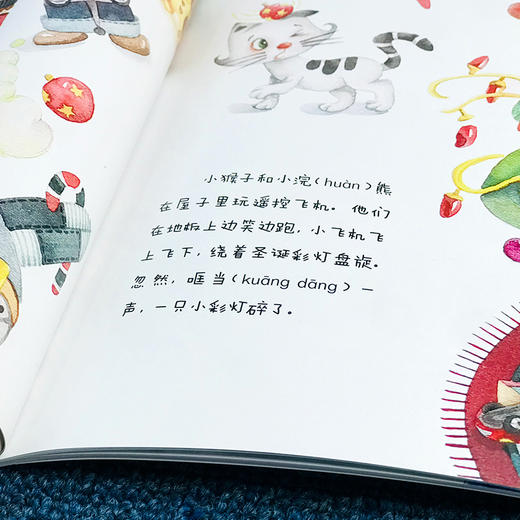 小猴子和小浣(huàn)熊
在屋子里玩遥控飞机。他们
在地板上边笑边跑，小飞机飞
上飞下，绕着圣诞彩灯盘旋。
忽然，哐当(kuāng dāng)一
声，一只小彩灯碎了。